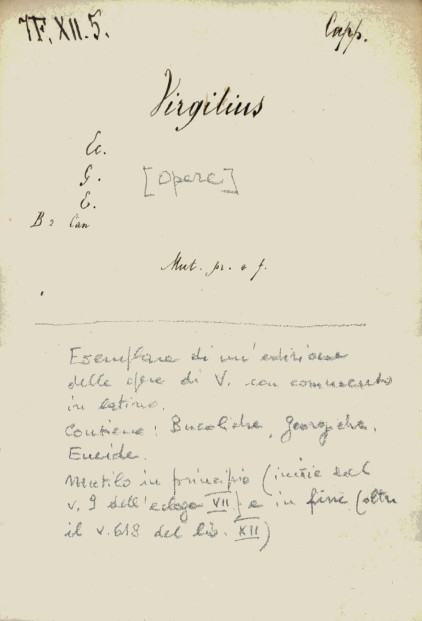 7F. XII. 5.
Capp.
Virgilius
Ec.
G.
[Opere]
E.
B = Can
Mut. pr. e f.
Esemplare di un'edizione
delle opere di V. con commento
in latino.
Contiene: Bucoliche, Georgiche,
Eneide.
Mutilo in principio (inizia dal
v. 9 dell'ecloga VII) e in fine (oltre
il v. 618 del lib. XII)